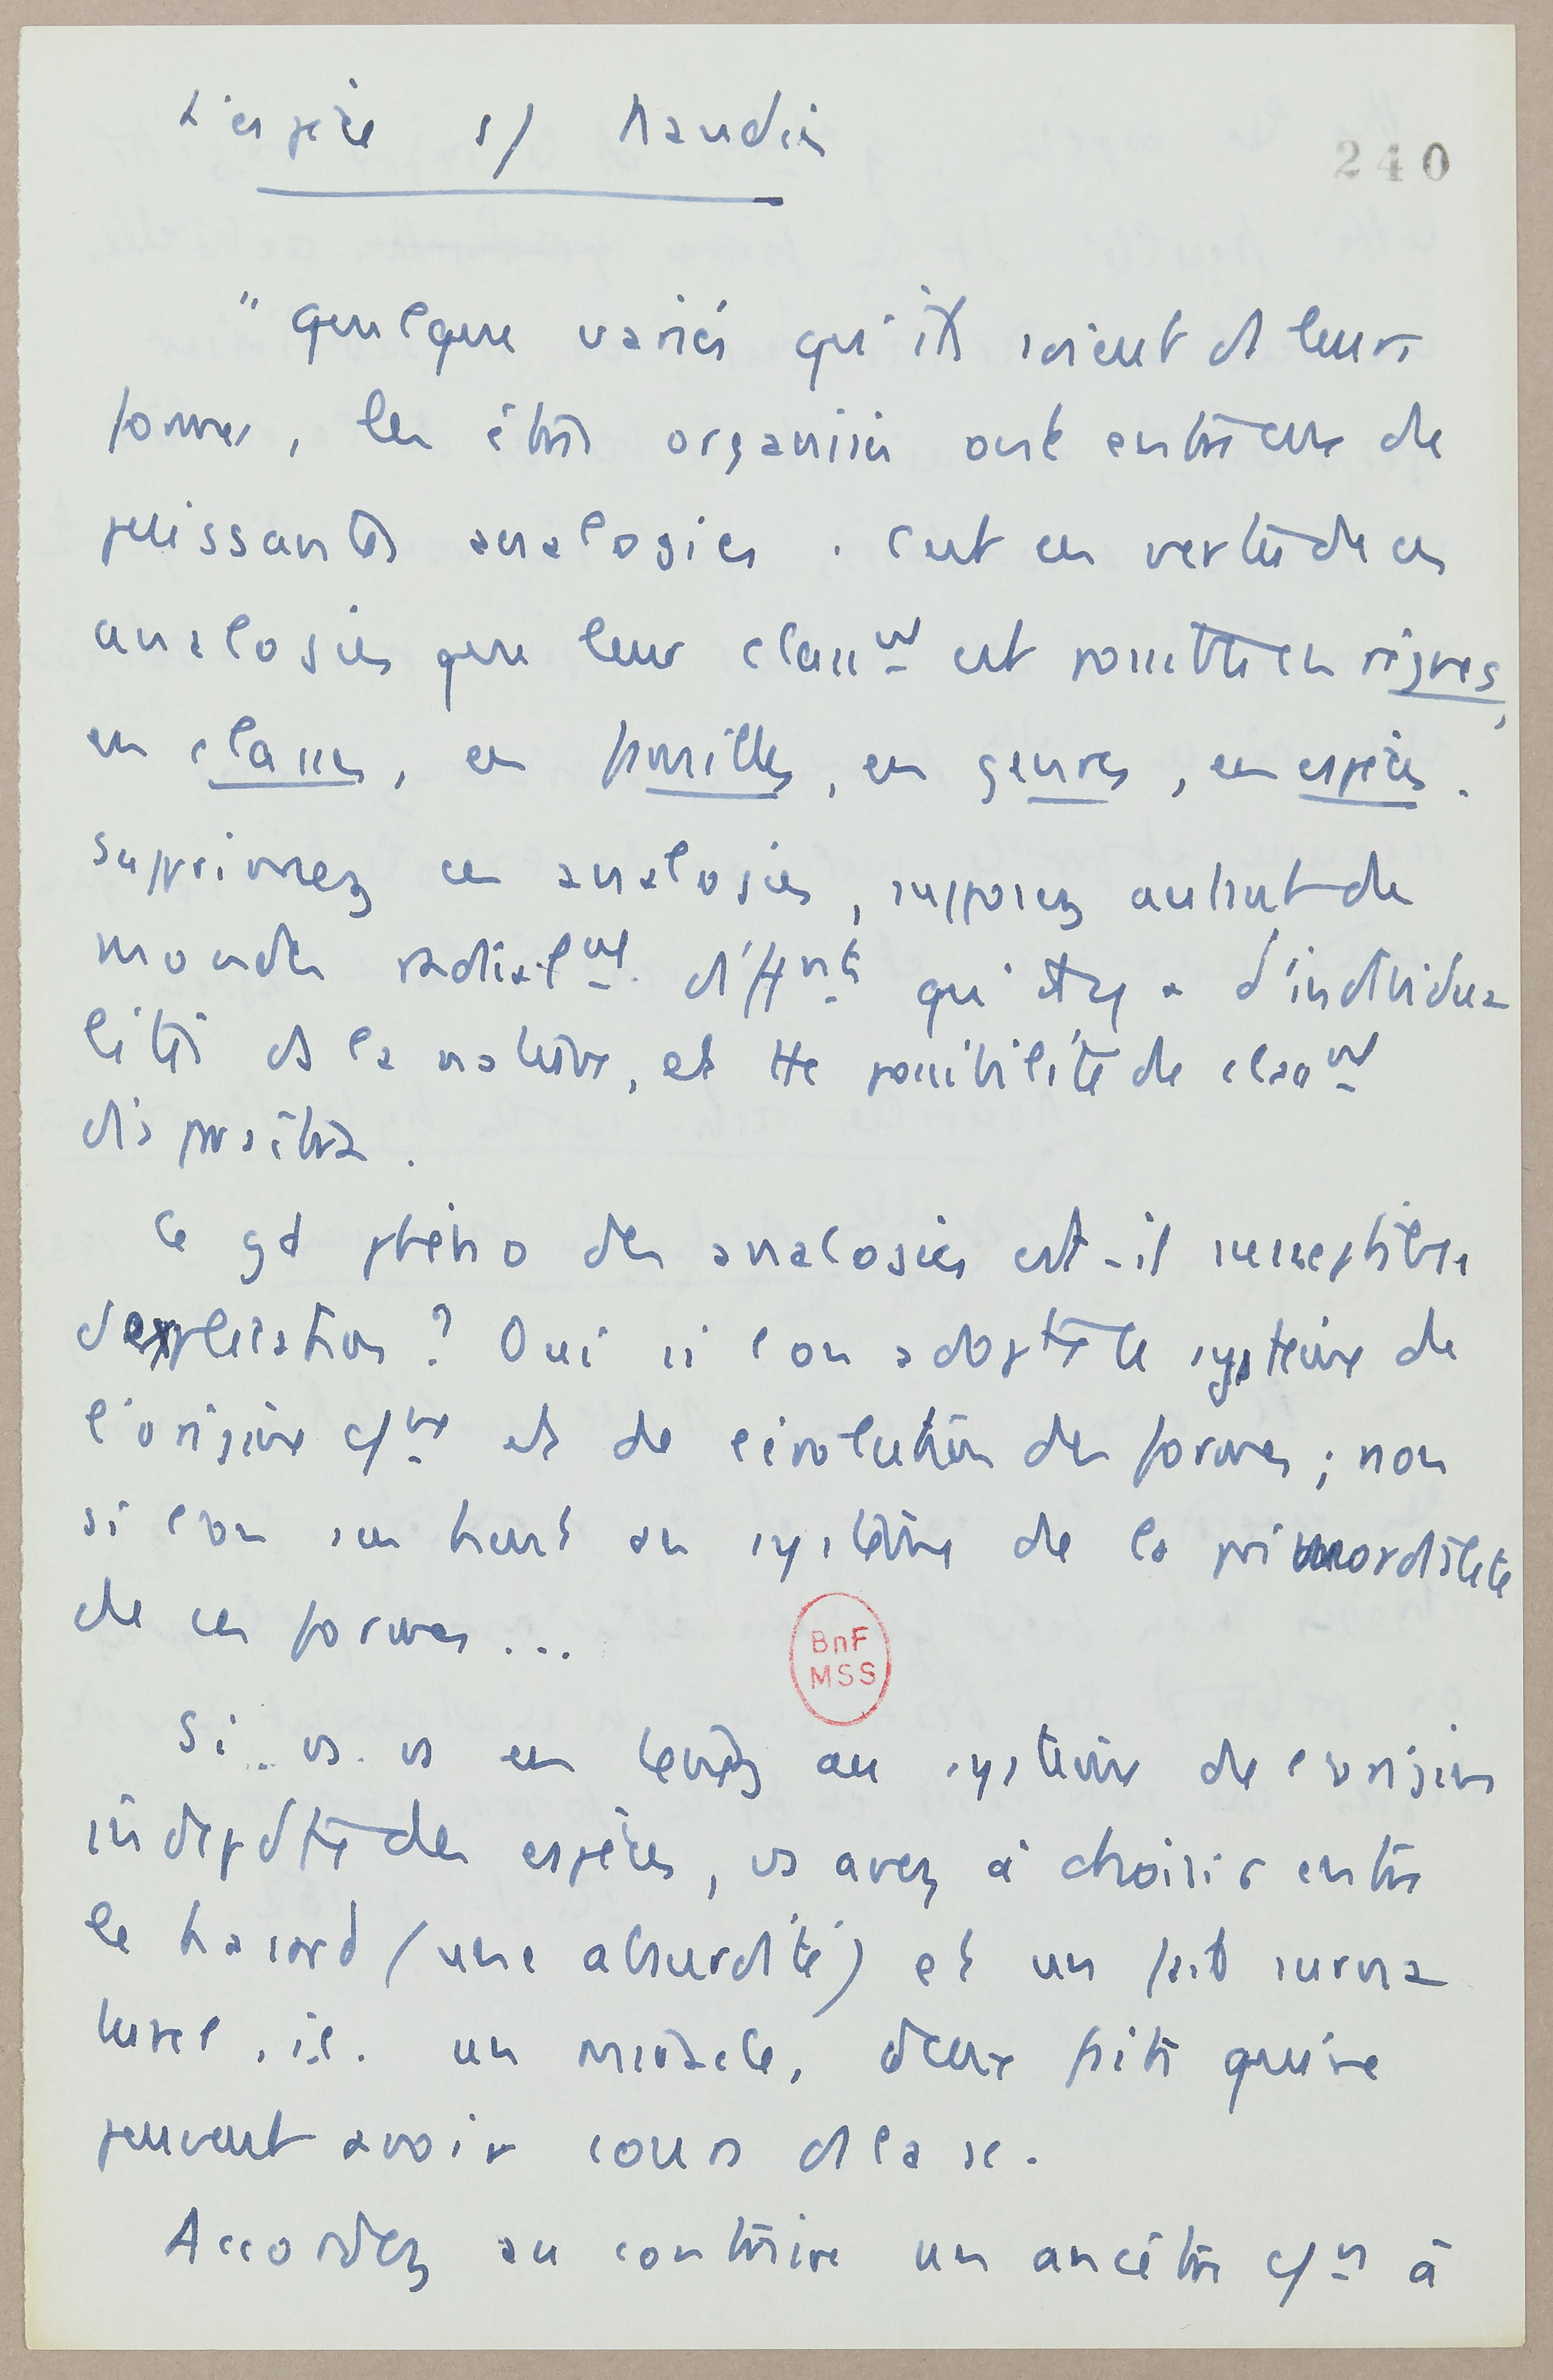 L'espèce s/ Naudin
240
"Quelque variés qu'ils soient ds leurs
formes, les êtres organisés ont entre eux de
puissantes analogies. C'est en vertu de ces
analogies que leur class^nt est possible en règnes,
en classes, en familles, en genres, en espèces.
Supprimez ces analogies, supposez autant de
mondes radical^nt diff^nts qu'il y a d'individua
lités ds la nature, et tte possibilité de class^nt
disparaîtra.
Ce gd phéno des analogies est-il susceptible
d'explication ? Oui si l'on adopte le système de
l'origine c/^ne et de l'évolution des formes ; non
si l'on s'en tient au système de la primordialité
de ces formes ...
Si vs vs en tenez au système de l'origine
indépdte des espèces, vs avez à choisir entre
le hasard (une absurdité) et un fait surna
turel, i.e. un miracle, deux faits qui ne
peuvent avoir cours ds la sc.
Accordez au contraire un ancêtre c/^n à
BnF
MSS